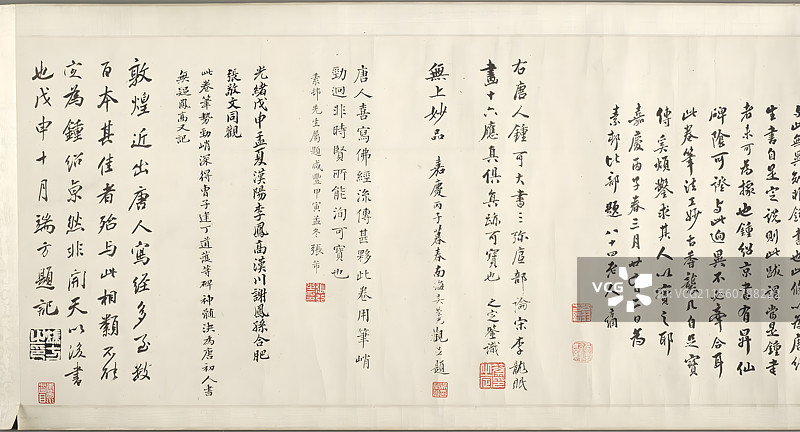 生書自是定說則此跋謂當是鐘書
者亦可為據也鐘紹京書有昇仙
碑陰可證与此迥異不牽合耳
此卷筆法工妙古香襲几自是寶
傳奚煩鑿求其人以實之耶
嘉慶丙子春三月廿日為
素邨比部題 八十四老人方綱
右唐人鐘可大書三弥底部論宋李龍眠
畫十六應真俱真跡可寶也 之定鑒識
無上妙品 嘉慶丙子暮春南海吳榮光觀並題
唐人喜寫佛經流傳甚夥此卷用筆峭
勁迥非時賢所能洵可寶也
素邨先生屬題咸豐甲寅孟冬張芾
光緒戊申孟夏漢陽李鳳高漢川謝鳳孫合肥
張敬文同觀
此卷筆勢勁峭深得曹子建丁道護等碑神髓決為唐初人書
無疑鳳高又記
敦煌近出唐人寫經多至數
百本其佳者殆与此相類不能
定為鍾紹京然非開天以後書
也戊申十月端方題記